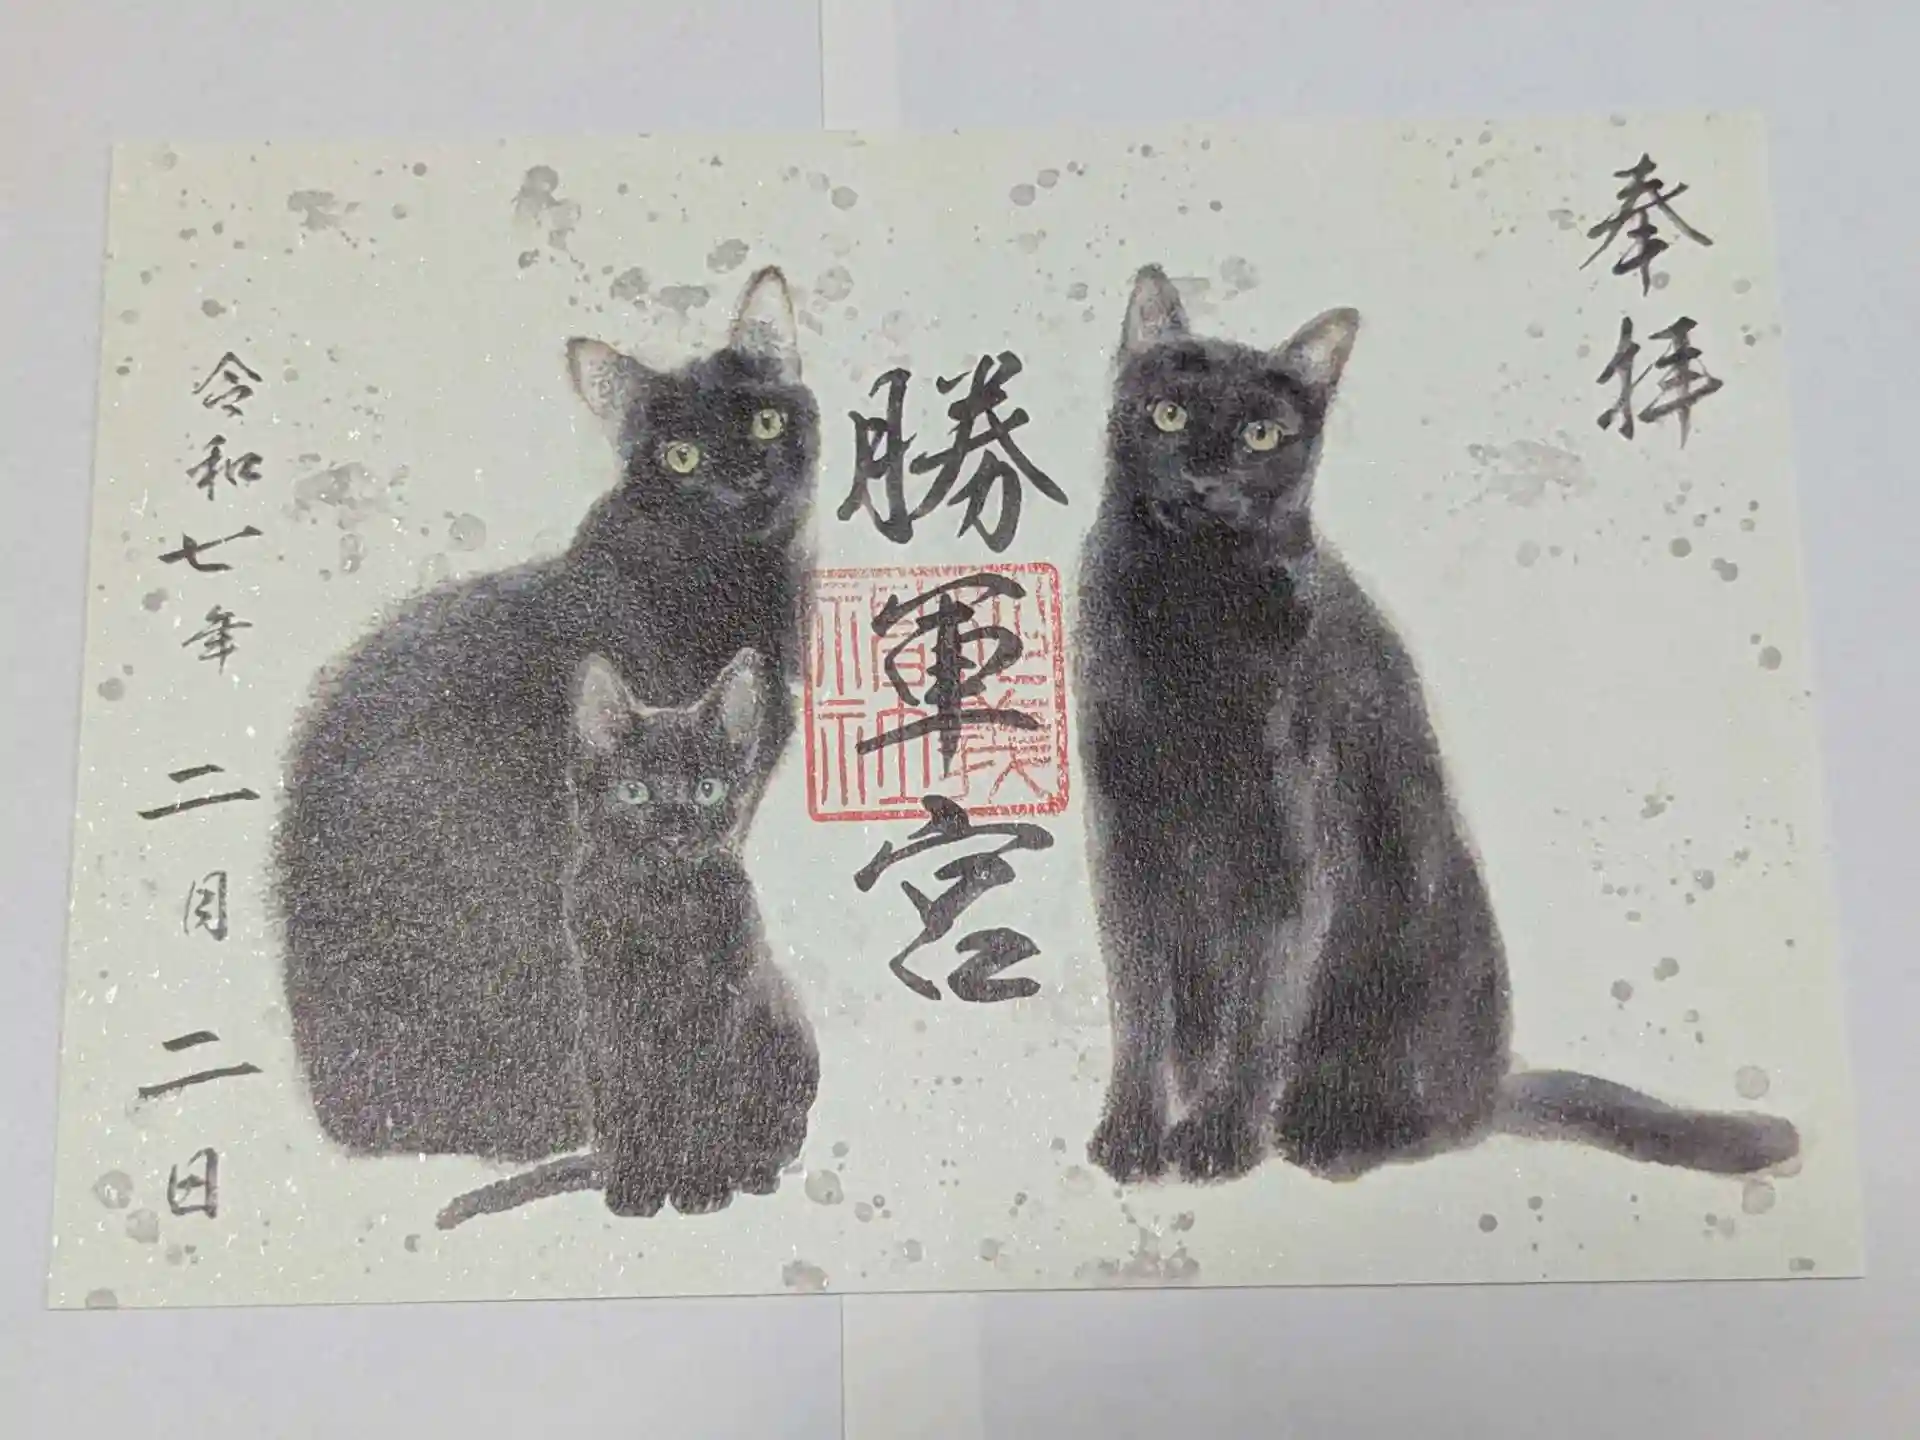 奉拝
勝軍宮
令和七年二月二日